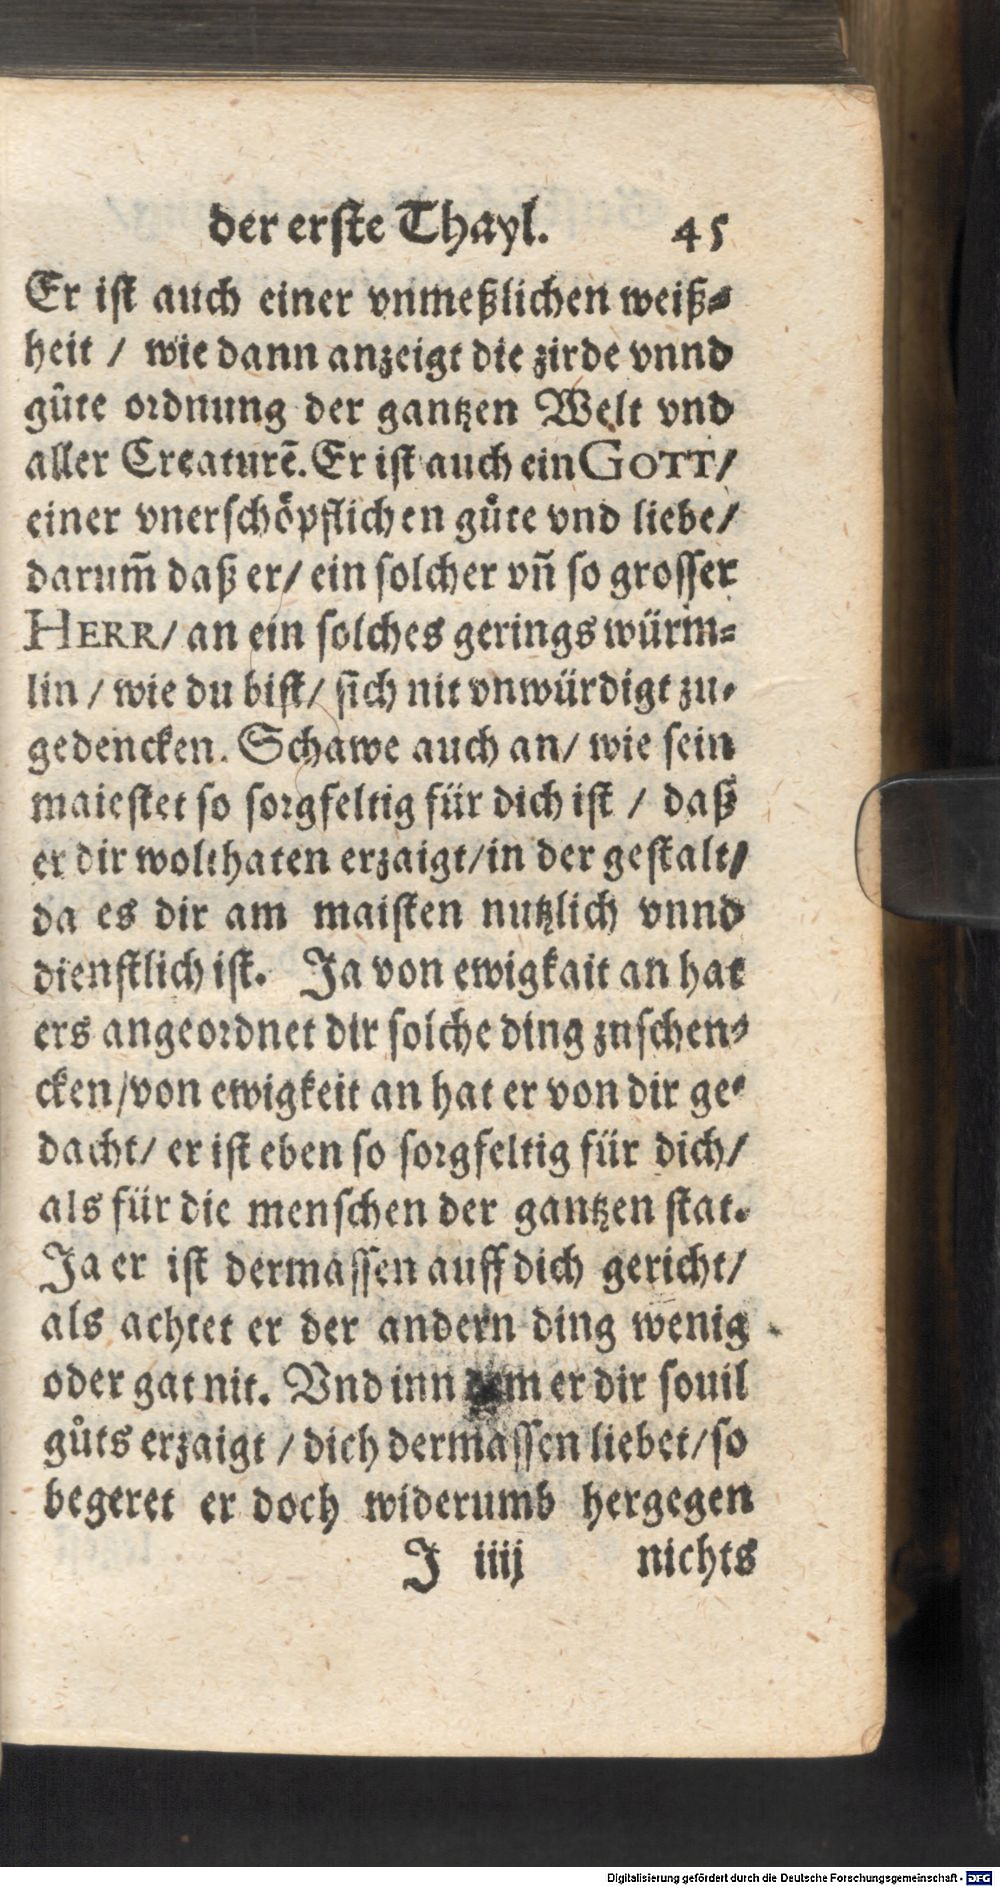 der erste Thayl. 45
Er ist auch einer vnmeßlichen weiß⸗
heit / wie dann anzeigt die zirde vnnd
gůte ordnung der gantzen Welt vnd
aller Creaturẽ. Er ist auch ein GOTT/
einer vnerschöpflichen gůte vnd liebe/
darum̃ daß er/ ein solcher vñ so grosser
HERR/ an ein solches gerings würm⸗
lin / wie du bist/ sich nit vnwürdigt zu⸗
gedencken. Schawe auch an/ wie sein
maiestet so sorgfeltig für dich ist / daß
er dir wolthaten erzaigt/in der gestalt/
da es dir am maisten nutzlich vnnd
dienstlich ist. Ja von ewigkait an hat
ers angeordnet dir solche ding zuschen⸗
cken/von ewigkeit an hat er von dir ge⸗
dacht/ er ist eben so sorgfeltig für dich/
als für die menschen der gantzen stat.
Ja er ist dermassen auff dich gericht/
als achtet er der andern ding wenig
oder gat nit. Vnd inn dem er dir souil
gůts erzaigt / dich dermassen liebet/so
begeret er doch widerumb hergegen
J iiij nichts
Digitalisierung gefördert durch die Deutsche Forschungsgemeinschaft - DFG